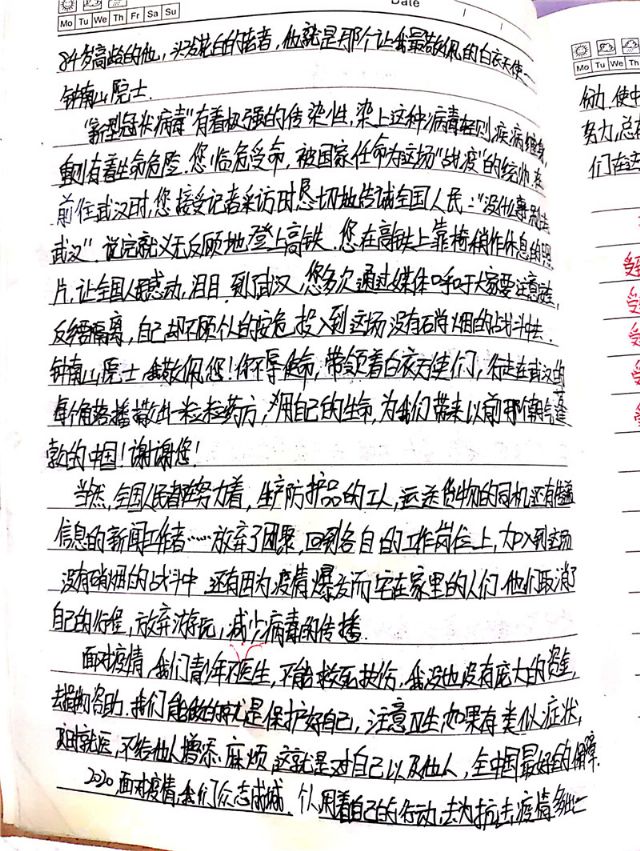 Date
Mo Tu We Th Fri Sa Su
Mo Tu We Th
84岁高龄的他，头发花白的老者，他就是那个让我最敬佩的白衣天使——
钟南山院士.
"新型冠状病毒"有着极强的传染性，染上这种病毒轻则疾病缠身，
重则有着生命危险。您临危受命，被国家任命为这场"战疫"的统帅.在
前往武汉时，您接受记者采访时恳切地告诫全国人民："没什么事别去
武汉"说完就义无反顾地登上高铁。您在高铁上靠椅稍作休息的照
片，让全国人民感动泪目.到武汉，您多次通过媒体呼吁大家要注意
反结隔离，自己却不顾个人的安危投入到这场没有硝烟的战斗中去.
钟南山院士我敬佩您！你不辱使命，带领着白衣天使们，行走在武汉的
每个角落播散一粒粒药方，用自己的生命，为我们带来以前那个朝气蓬
勃的中国！谢谢您！
当然，全国人民都在努力着，生产防护品的工人，运送货物的司机还有传播
信息的新闻工作者……放弃了团聚，回到各自的工作岗位上，加入到这场
没有硝烟的战斗中.还有因为疫情爆发而宅在家里的人们他们取消了
自己的行程，放弃游玩，减少病毒的传播.
面对疫情，我们青少年不医生，不能救死扶伤，我没也没有庞大的资金，
去捐物资助.我们能做的就是保护好自己，注意卫生如果有类似症状，
及时就医，不给他人增添麻烦.这就是对自己以及他人，全中国最好的保障.
2020面对疫情，我们众志成城.个人用着自己的行动，去为抗击疫情多出一
份力，使中
努力，总在
们在这